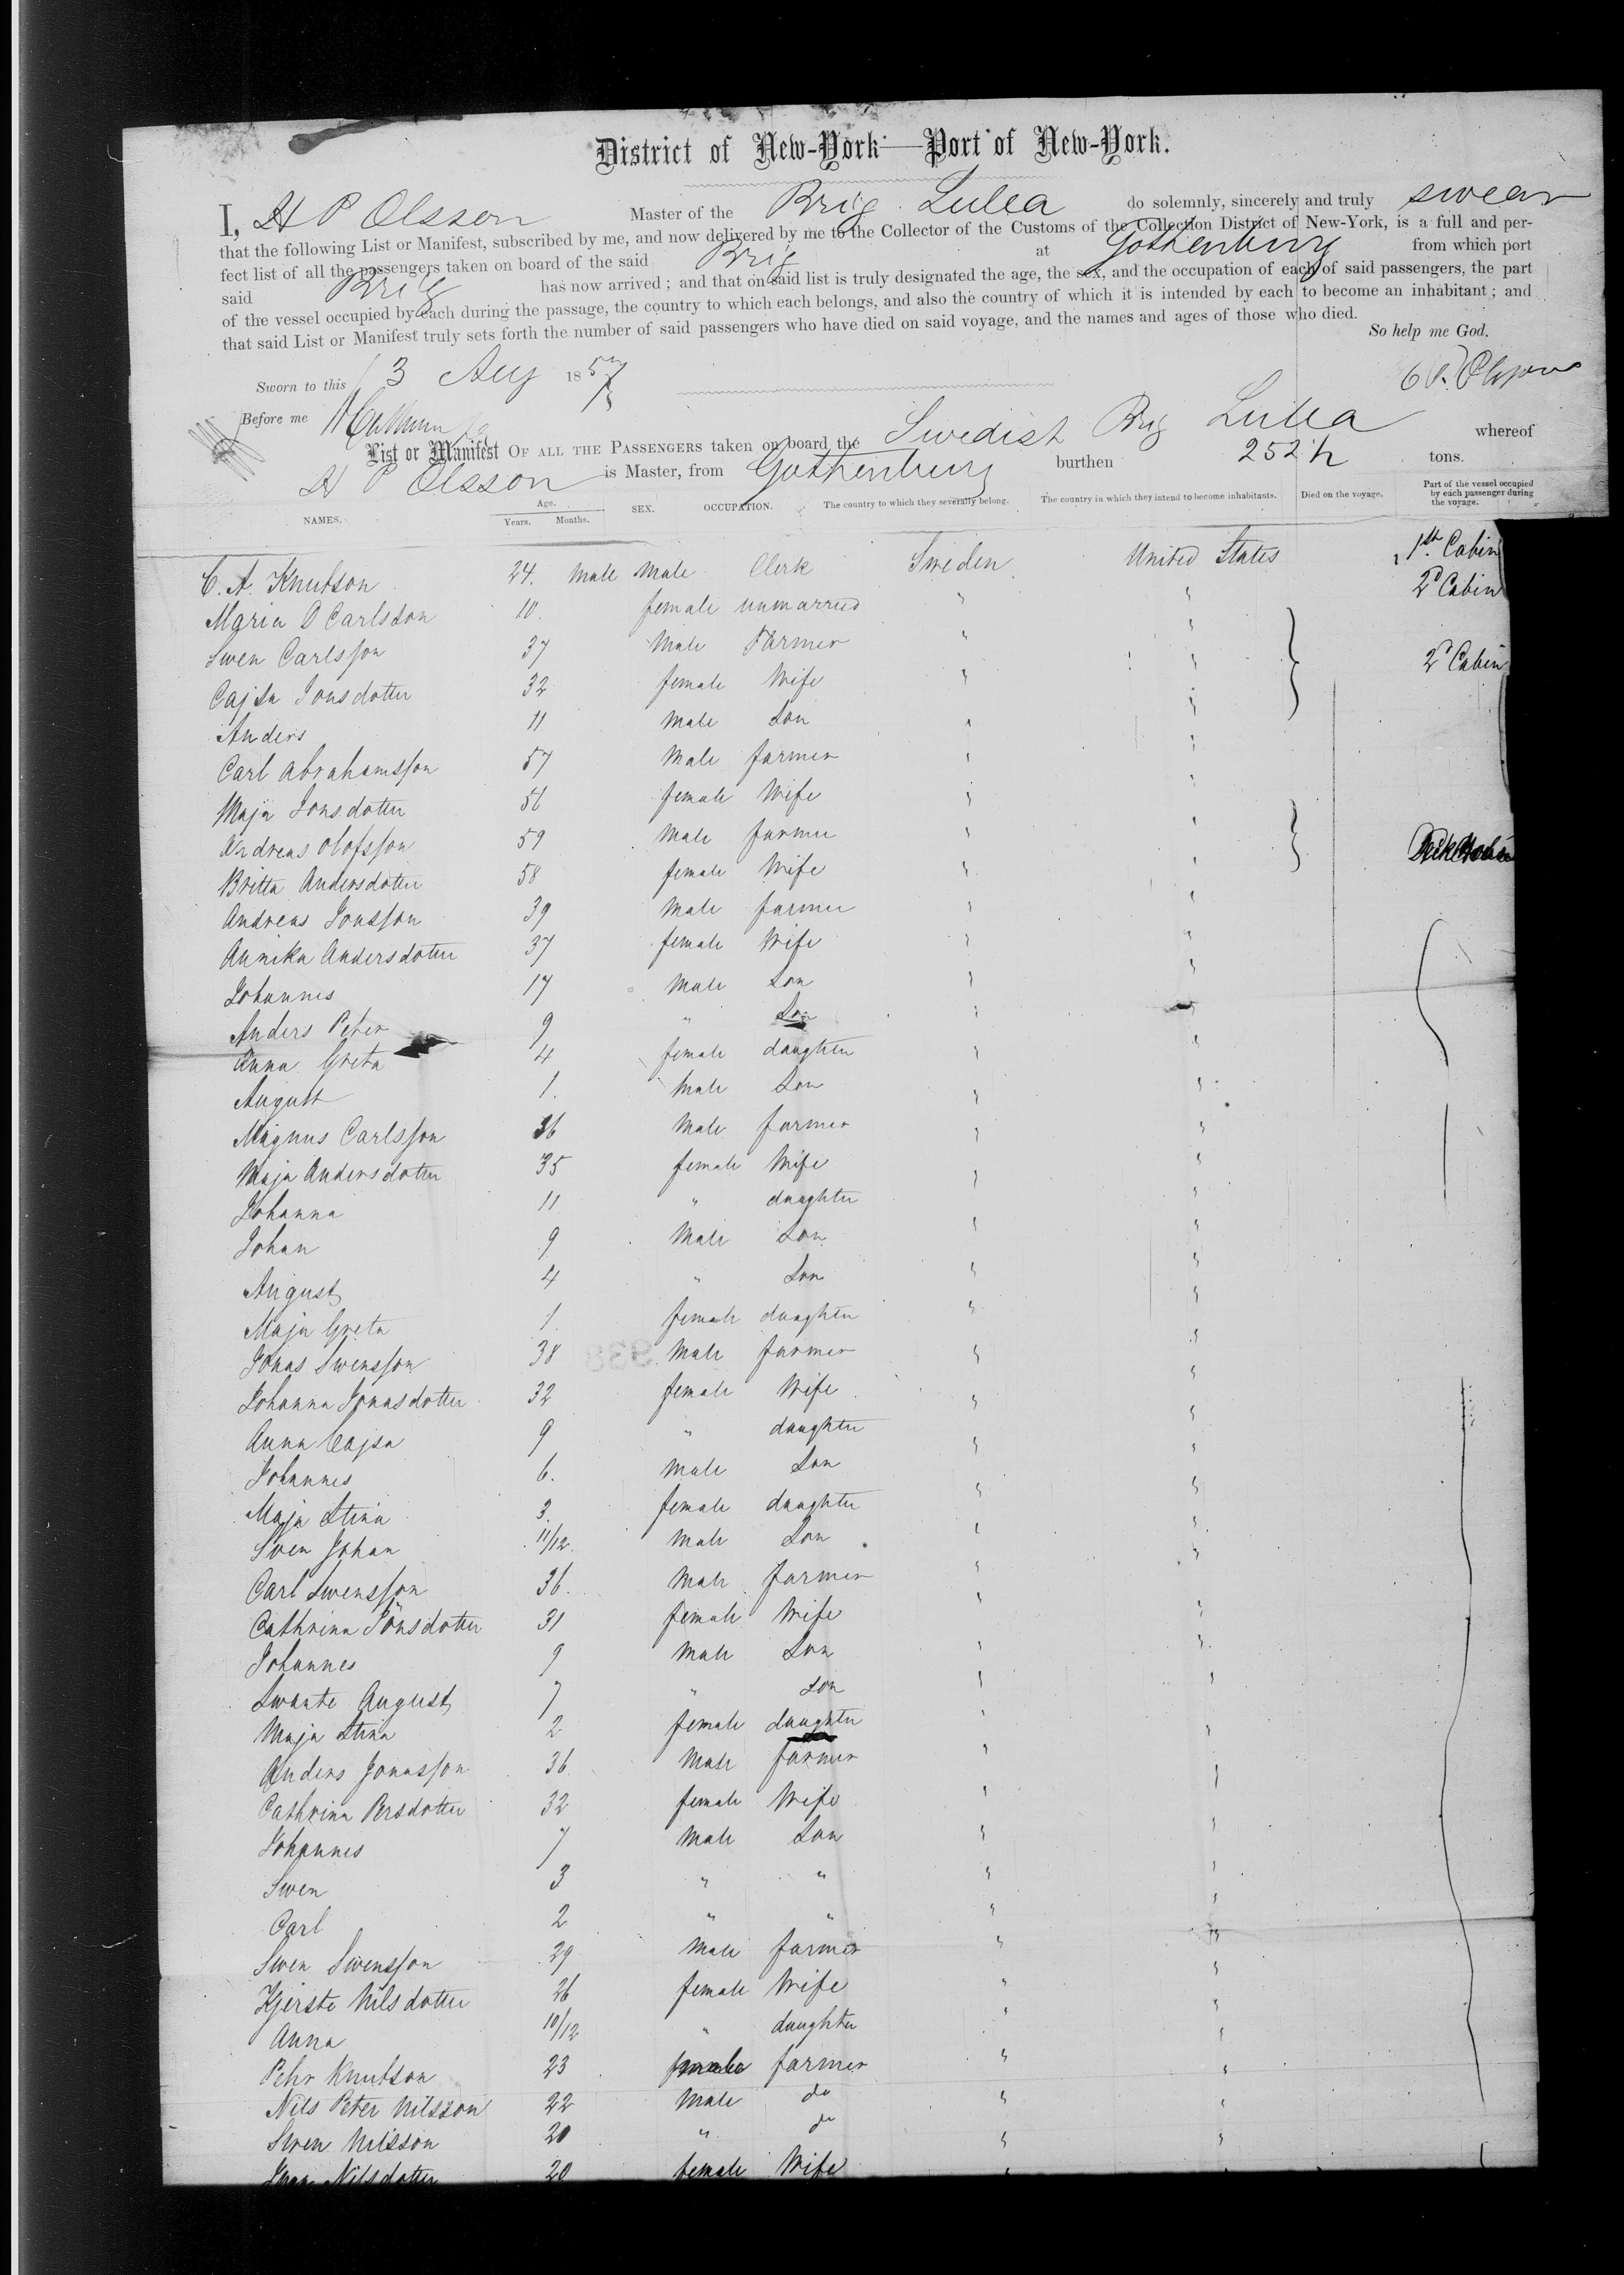 District of New-York—Port of New-York.
I, H P Olsson Master of the Brig Lulea do solemnly, sincerely and truly swear
that the following List or Manifest, subscribed by me, and now delivered by me to the Collector of the Customs of the Collection District of New-York, is a full and per-
fect list of all the passengers taken on board of the said Brig at Gothenburg from which port
said Brig has now arrived; and that on said list is truly designated the age, the sex, and the occupation of each of said passengers, the part
of the vessel occupied by each during the passage, the country to which each belongs, and also the country of which it is intended by each to become an inhabitant; and
that said List or Manifest truly sets forth the number of said passengers who have died on said voyage, and the names and ages of those who died.
So help me God.
Sworn to this 3 Aug 1857
Before me
List or Manifest OF ALL THE PASSENGERS taken on board the Swedish Brig Lulea whereof
H P Olsson is Master, from Gothenburg burthen 252 ½ tons.
NAMES. Age. Years. Months. SEX. OCCUPATION. The country to which they severally belong. The country in which they intend to become inhabitants. Died on the voyage. Part of the vessel occupied by each passenger during the voyage.
C. A. Knutson 24. Male Male Clerk Sweden United States 1st Cabin
Maria D Carlsson 10. female unmarried " " 2d Cabin
Swen Carlsson 37 Male Farmer " "
Cajsa Jonsdotter 32 female Wife " " 2d Cabin
Anders 11 Male Son " "
Carl Abrahamsson 57 Male farmer " "
Maja Jonsdotter 56 female Wife " "
Andreas Olofsson 59 Male farmer " "
Britta Andersdotter 58 female Wife " "
Andreas Jonsson 39 Male farmer " "
Annika Andersdotter 37 female Wife " "
Johannes 17 Male Son " "
Anders Peter 9 " Son " "
Anna Greta 4 female daughter " "
August 1. Male Son " "
Magnus Carlsson 36 Male farmer " "
Maja Andersdotter 35 female Wife " "
Johanna 11 " daughter " "
Johan 9 Male Son " "
August 4 " Son " "
Maja Greta 1. female daughter " "
Jonas Swensson 38 Male farmer " "
Johanna Jonasdotter 32 female Wife " "
Anna Cajsa 9 " daughter " "
Johannes 6. Male Son " "
Maja Stina 3. female daughter " "
Sven Johan 11/12 Male Son " "
Carl Swensson 36. Male farmer " "
Cathrina Jönsdotter 31 female Wife " "
Johannes 9 Male Son " "
Swante August 7 " Son " "
Maja Stina 2 female daughter " "
Anders Jonasson 36 Male farmer " "
Cathrina Persdotter 32 female Wife " "
Johannes 7 Male Son " "
Swen 3 " " " "
Carl 2 " " " "
Swen Swensson 29 Male farmer " "
Kjerste Nilsdotter 26 female Wife " "
Anna 10/12 " daughter " "
Pehr Knutson 23 farmer " "
Nils Peter Nilsson 22 Male do " "
Swen Nilsson 20 " do " "
Nilsdotter 20 female Wife " "